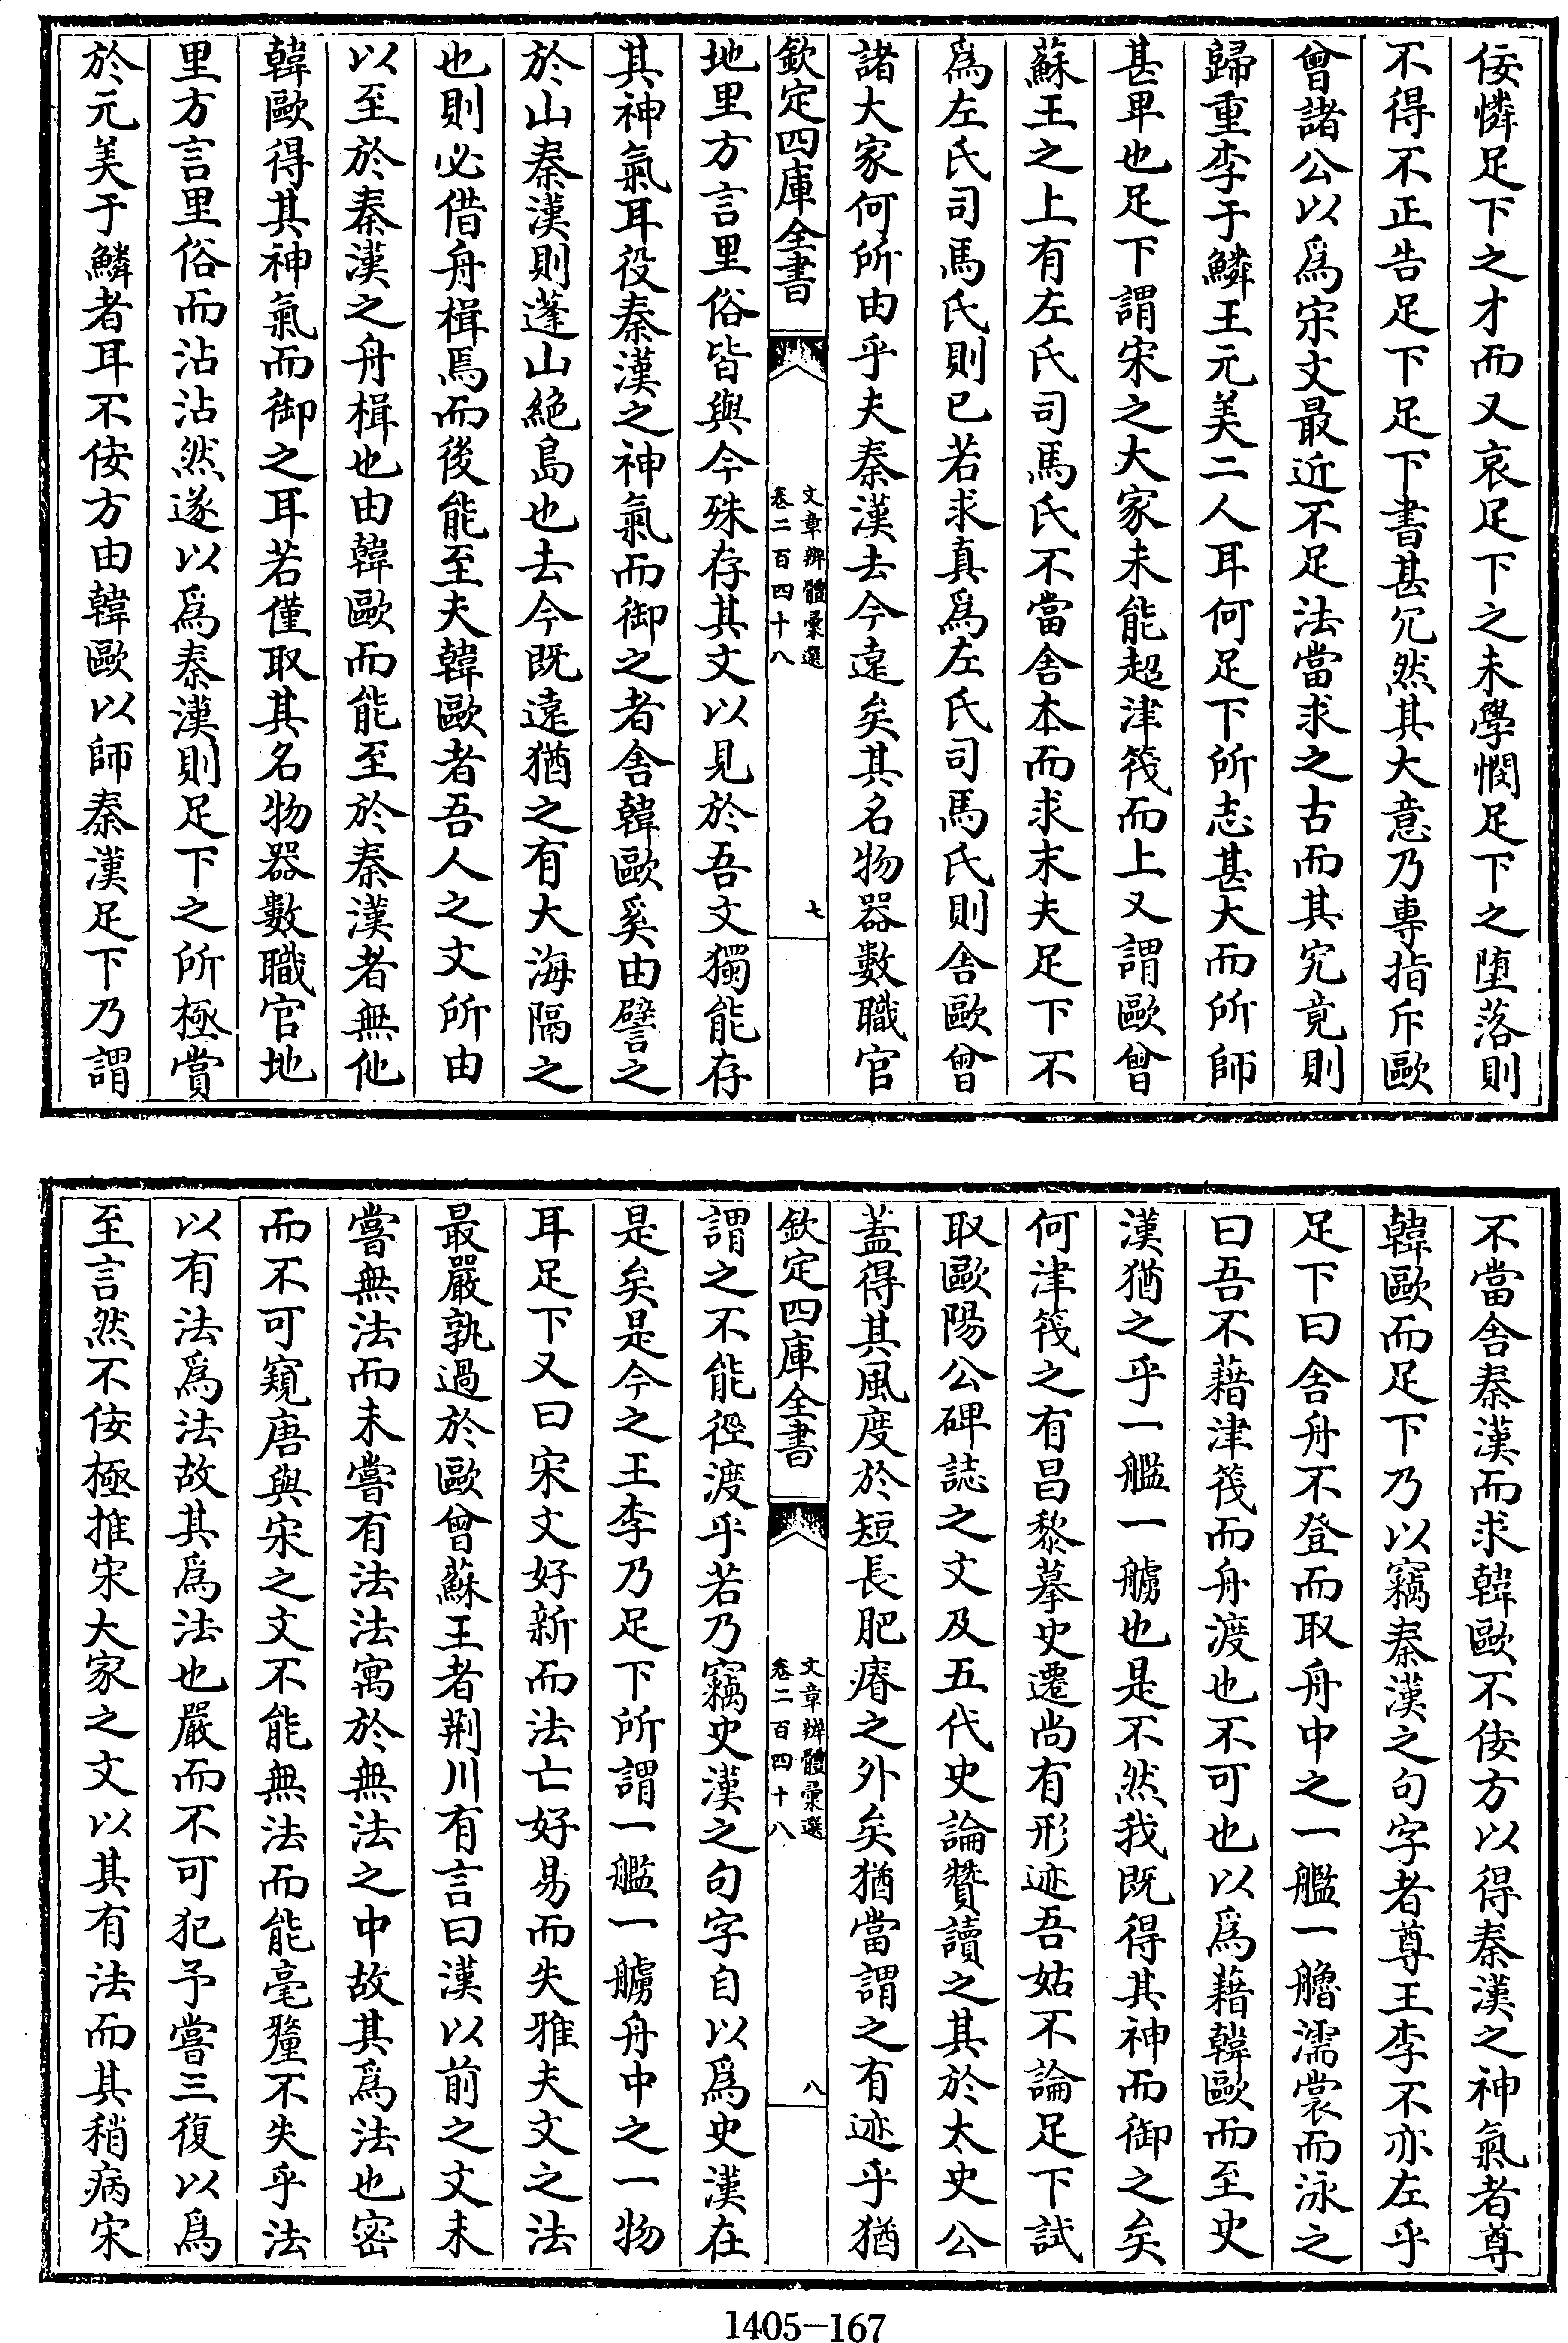 佞憐足下之才而又哀足下之未學憫足下之墮落則
不得不正告足下足下書甚冗然其大意乃專指斥歐
曾諸公以爲宋文最近不足法當求之古而其究竟則
歸重李于鱗王元美二人耳何足下所志甚大而所師
甚卑也足下謂宋之大家未能超津筏而上又謂歐曾
蘇王之上有左氏司馬氏不當舍本而求末夫足下不
爲左氏司馬氏則已若求真爲左氏司馬氏則舍歐曾
諸大家何所由乎夫秦漢去今遠矣其名物器數職官
欽定四庫全書
文章辨體彙選
卷二百四十八
七
地里方言里俗皆與今殊存其文以見於吾文獨能存
其神氣耳役秦漢之神氣而御之者舍韓歐奚由譬之
於山秦漢則蓬山絶島也去今既遠猶之有大海隔之
也則必借舟楫焉而後能至夫韓歐者吾人之文所由
以至於秦漢之舟楫也由韓歐而能至於秦漢者無他
韓歐得其神氣而御之耳若僅取其名物器數職官地
里方言里俗而沾沾然遂以爲秦漢則足下之所極賞
於元美于鱗者耳不佞方由韓歐以師秦漢足下乃謂
不當舍秦漢而求韓歐不佞方以得秦漢之神氣者尊
韓歐而足下乃以竊秦漢之句字者尊王李不亦左乎
足下曰舍舟不登而取舟中之一艦一艪濡裳而泳之
曰吾不藉津筏而舟渡也不可也以爲藉韓歐而至史
漢猶之乎一艦一艣也是不然我既得其神而御之矣
何津筏之有昌黎摹史遷尚有形迹吾姑不論足下試
取歐陽公碑誌之文及五代史論贊讀之其於太史公
蓋得其風度於短長肥瘠之外矣猶當謂之有迹乎猶
欽定四庫全書
文章辨體彙選
卷二百四十八
八
謂之不能徑渡乎若乃竊史漢之句字自以爲史漢在
是矣是今之王李乃足下所謂一艦一艣舟中之一物
耳足下又曰宋文好新而法亡好易而失雅夫文之法
最嚴孰過於歐曾蘇王者荆川有言曰漢以前之文未
嘗無法而未嘗有法法寓於無法之中故其爲法也密
而不可窺唐與宋之文不能無法而能毫釐不失乎法
以有法爲法故其爲法也嚴而不可犯予嘗三復以爲
至言然不佞極推宋大家之文以其有法而其稍病宋
1405-167